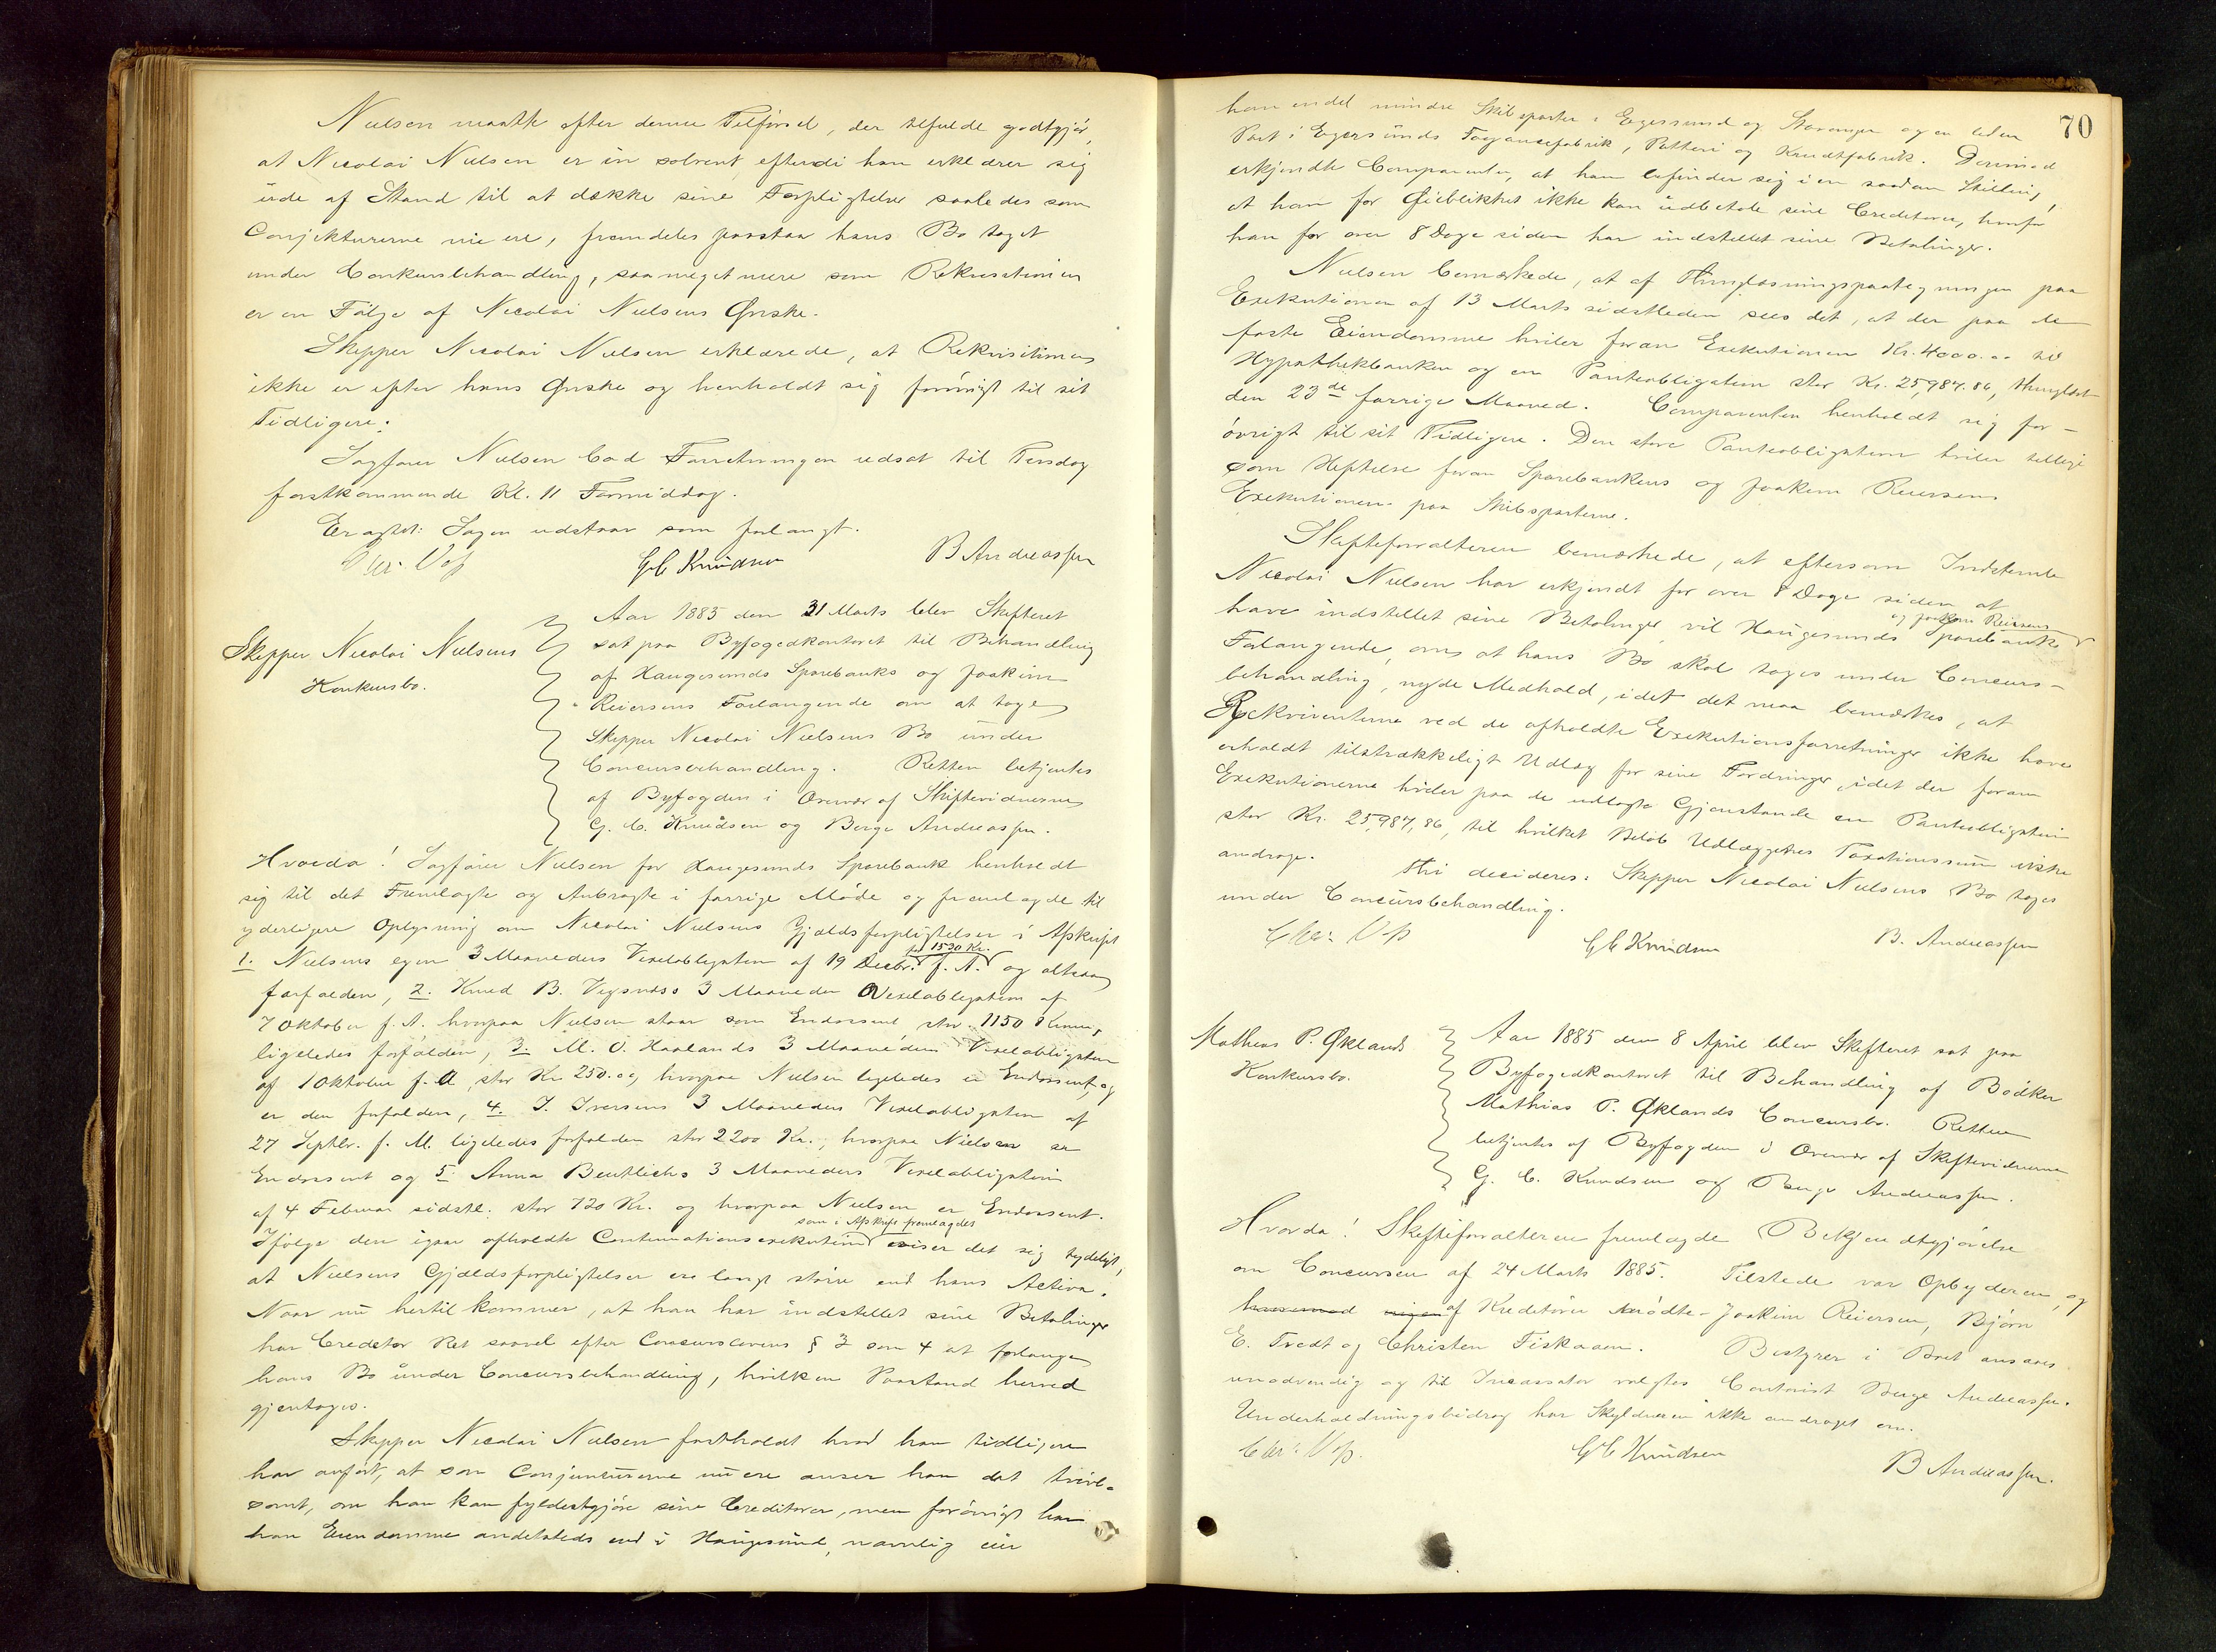 Nielsen maatte efter denne Tilførsel, der tilfulde godtgjør,
at Nicolai Nielsen er insolvent, efterdi han erklærer sig
ude af Stand til at dække sine Forpligtelser saaledes som
Conjekturerne nu ere, fremdeles paastaa hans Bo taget
under Conkursbehandling, saa meget mere som Rekvisitionen
er en Følge af Nicolai Nielsens Ønske.
Skipper Nicolai Nielsen erklærede, at Rekvisitionen
ikke er efter hans Ønske og henholdt sig forøvrigt til sit
Tidligere.
Sagfører Nielsen bad Forretningen udsat til Tirsdag
førstkommende Kl. 11 Formiddag.
Eragtet: Sagen udstaar som forlangt.
Chr. Voss GC Knudsen B Andreassen
Skipper Nicolai Nielsens
Konkursbo.
Aar 1885 den 31 Marts blev Skifteret
sat paa Byfogedkontoret til Behandling
af Haugesunds Sparebanks og Joakim
Reiersens Forlangende om at tage
Skipper Nicolai Nielsens Bo under
Concursbehandling. Retten betjentes
af Byfogden i Overvær af Skiftevidnerne
G. C. Knudsen og Berge Andreassen.
Hvorda! Sagfører Nielsen for Haugesunds Sparebank henholdt
sig til det Fremlagte og Anbragte i forrige Møde og fremlagde til
yderligere Oplysning om Nicolai Nielsens Gjældsforpligtelser i Afskrift
for 1530 Kr.
1. Nielsens egen 3 Maaneders Vexelobligation af 19 Decbr. f. A. og altsaa
forfalden, 2. Knud B. Vigsnæss 3 Maaneders Vexelobligation af
7 Oktober f. A. hvorpaa Nielsen staar som Endossent, stor 1150 Kroner,
ligeledes forfalden, 3. M. O. Haalands 3 Maaneders Vexelobligation
af 1 Oktober f. A. stor Kr. 250.00, hvorpaa Nielsen ligeledes er Endossent, og
er den forfalden, 4. I. Iversens 3 Maaneders Vexelobligation af
27 Septbr. f. A. ligeledes forfalden stor 2200 Kr., hvorpaa Nielsen er
Endossent og 5. Anna Bentlichs 3 Maaneders Vexelobligation
af 4 Februar sidstl. stor 720 Kr. og hvorpaa Nielsen er Endossent.
som i Afskrift fremlagdes
Ifølge den igaar afholdte Continuationsexekution viser det sig tydeligt,
at Nielsens Gjældsforpligtelser ere langt større end hans Activa.
Naar nu hertil kommer, at han har indstillet sine Betalinger
har Creditor Ret saavel efter Concurslovens § 3 som 4 at forlange
hans Bo under Concursbehandling, hvilken Paastand herved
gjentages.
Skipper Nicolai Nielsen fastholdt hvad han tidligere
har anført, at som Conjuncturerne nu ere anser han det tvivl-
somt, om han kan fyldestgjøre sine Creditorer, men forøvrigt har
han Eiendomme andetsteds end i Haugesund, navnlig eier
70
han endel mindre Skibsparter i Egersund og Stavanger og en liden
Part i Egersunds Fayancefabrik, Potteri og Krudtfabrik. Derimod
erkjendte Comparenten, at han befinder sig i en saadan Stilling,
at han for Øieblikket ikke kan udbetale sine Creditorer, hvorfor
han for over 8 Dage siden har indstillet sine Betalinger.
Nielsen bemærkede, at af Thinglæsningspaategningen paa
Exekutionen af 13 Marts sidstleden sees det, at der paa de
faste Eiendomme hviler foran Exekutionen Kr. 4000.00 til
Hypothekbanken og en Panteobligation stor Kr. 25,987.86, thinglæst
den 23de forrige Maaned. Comparenten henholdt sig for-
øvrigt til sit Tidligere. Den store Panteobligation hviler tillige
som Heftelse foran Sparebankens og Joakim Reiersens
Exekutioner paa Skibsparterne.
Skifteforvalteren bemærkede, at eftersom Indstevnte
Nicolai Nielsen har erkjendt for over 8 Dage siden at
og Joakim Reiersens
have indstillet sine Betalinger, vil Haugesunds Sparebanks
Forlangende, om at hans Bo skal tages under Concurs-
behandling, nyde Medhold, idet det maa bemærkes, at
Rekvirenterne ved de afholdte Exekutionsforretninger ikke have
erholdt tilstrækkeligt Udlæg for sine Fordringer, idet der foran
Exekutionerne hviler paa de udlagte Gjenstande en Panteobligation
stor Kr. 25,987,86, til hvilket Beløb Udlæggets Taxationssum ikke
andrage. Thi decideres: Skipper Nicolai Nielsens Bo tages
under Concursbehandling.
Chr. Voss GC Knudsen B. Andreassen
Mathias P. Øklands
Konkursbo.
Aar 1885 den 8 April blev Skifteret sat paa
Byfogedkontoret til Behandling af Bødker
Mathias P. Øklands Concursbo. Retten
betjentes af Byfogden i Overvær af Skiftevidnerne
G. C. Knudsen og Berge Andreassen.
Hvorda! Skifteforvalteren fremlagde Bekjendtgjørelse
om Concursen af 24 Marts 1885. Tilstede var Opbyderen, og
af Kreditorer mødte Joakim Reiersen, Bjørn
E. Tvedt og Christen Fiskaaen. Bestyrer i Boet ansaaes
unødvendig og til Incassator valgtes Contorist Berge Andreassen.
Underholdningsbidrag har Skyldneren ikke andraget om.
Chr. Voss. GC Knudsen B Andreassen.